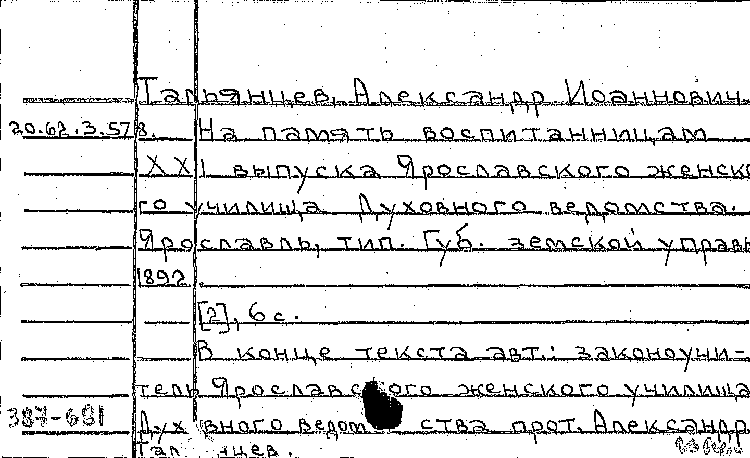 Тальянцев, Александр Иоаннович.
20.62.3.578. На память воспитанницам
XXI выпуска Ярославского женско-
го училища Духовного ведомства.
Ярославль, тип. Губ. земской управы
1892.
[2], 6 с.
В конце текста авт.: законоучи-
тель Ярославского женского училища
387-681 Дух вного ведом ства прот. Александр
Тал нцев.